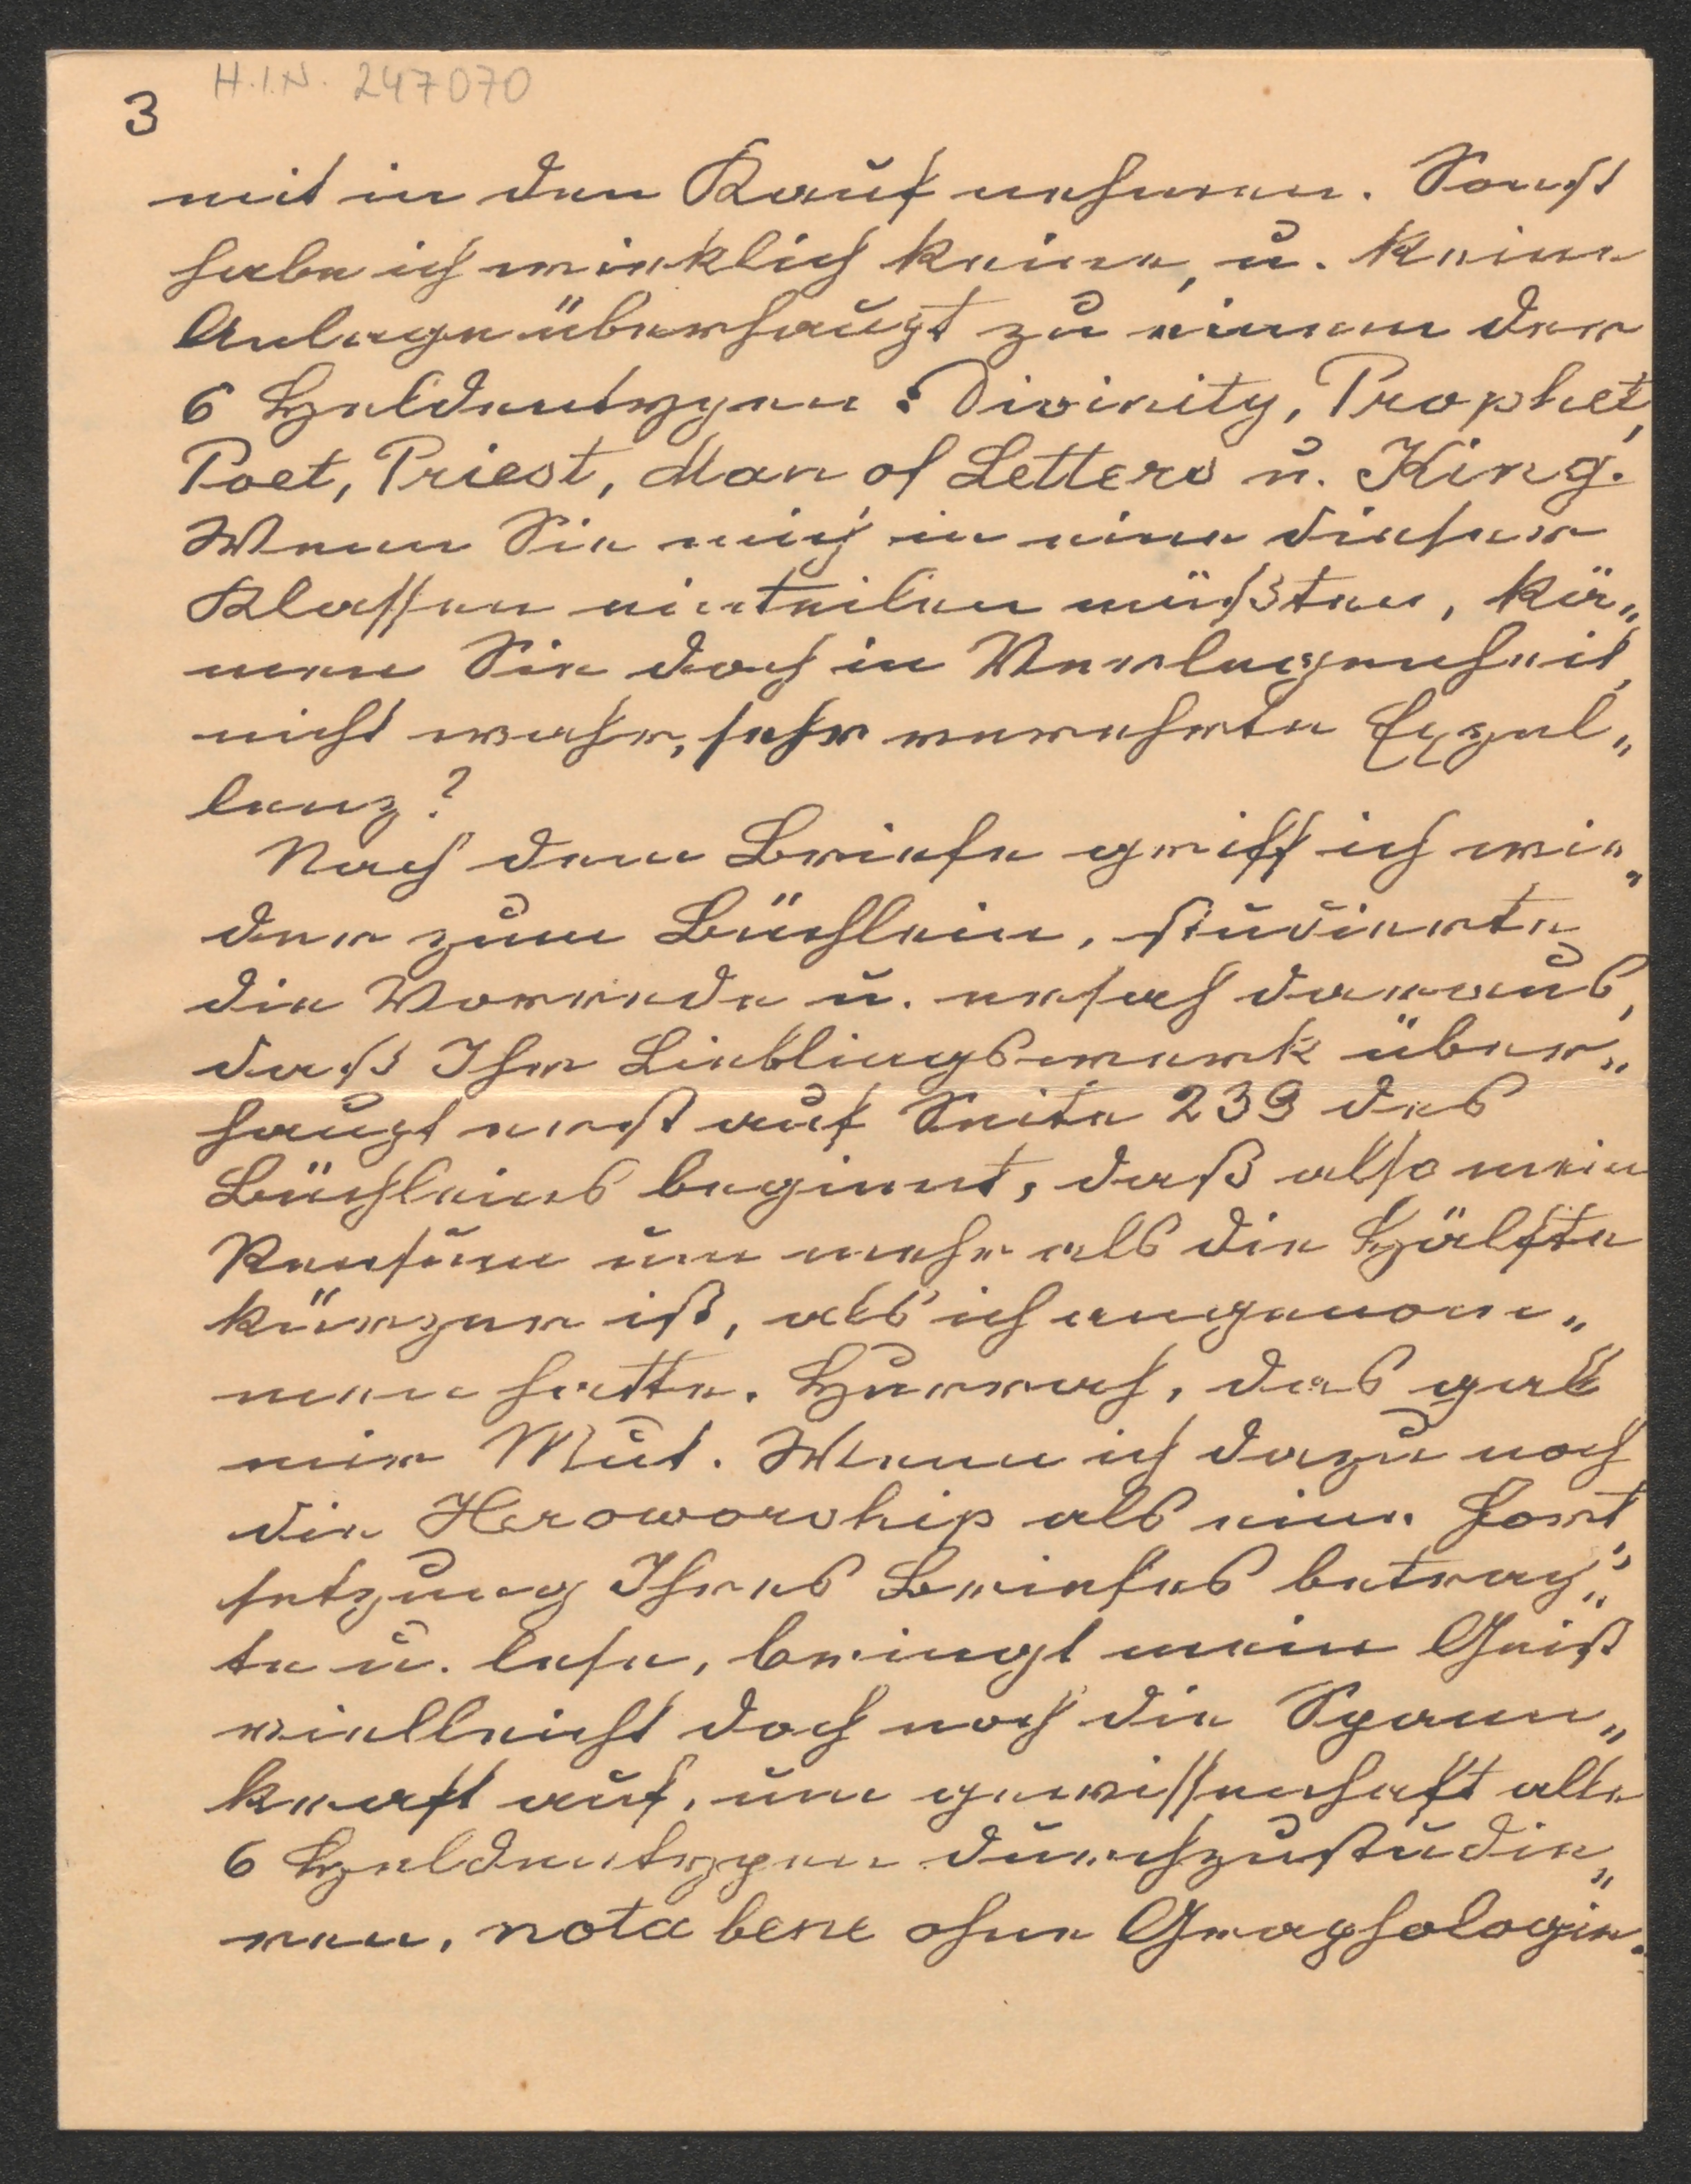 H.I.N. 247070
3
mit in den Kauf nehmen. Sonst
habe ich wirklich keine, u. keine
Anlage überhaupt zu einem der
6 Heldentypen: Divinity, Prophet,
Poet, Priest, Man of Letters u. King.
Wenn Sie mich in eine dieser
Klassen einteilen müßten, kä„
men Sie doch in Verlegenheit,
nicht wahr, sehr verehrte Exzel„
lenz?
Nach dem Briefe griff ich wie„
der zum Büchlein, studierte
die Vorrede u. ersah daraus,
daß Ihr Lieblingswerk über„
haupt erst auf Seite 239 des
Büchleins beginnt, daß also mein
Pensum um mehr als die Hälfte
kürzer ist, als ich angenom„
men hatte. Hurrah, das gab
mir Mut. Wenn ich dazu noch
die Heroworship als eine Fort„
setzung Ihres Briefes betrach„
te u. lese, bringt mein Geist
vielleicht doch noch die Spann„
kraft auf, um gewissenhaft alle
6 Heldentypen durchzustudie„
ren, nota bene ohne Graphologie.